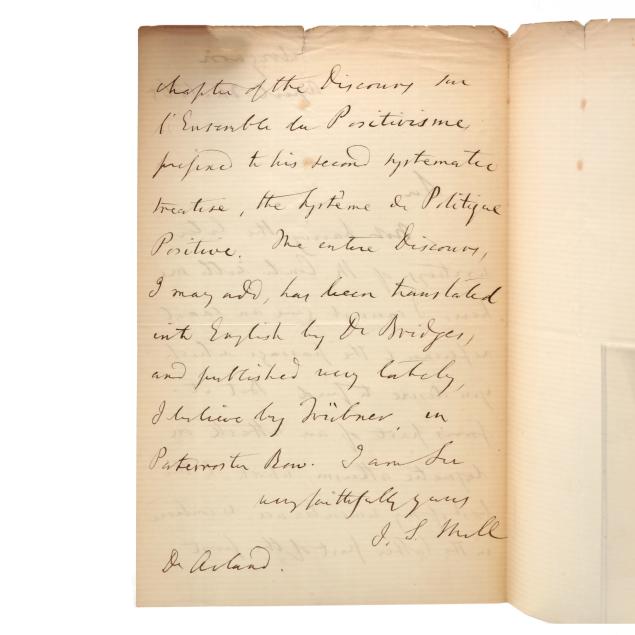 chapter of the Discours sur
l'Ensemble du Positivisme,
prefixed to his second systematic
treatise, the Système de Politique
Positive. The entire Discours,
I may add, has been translated
into English by Dr Bridges,
and published very lately,
I believe by Trübner, in
Paternoster Row. I am Sir
very faithfully yours
J. S. Mill
Dr